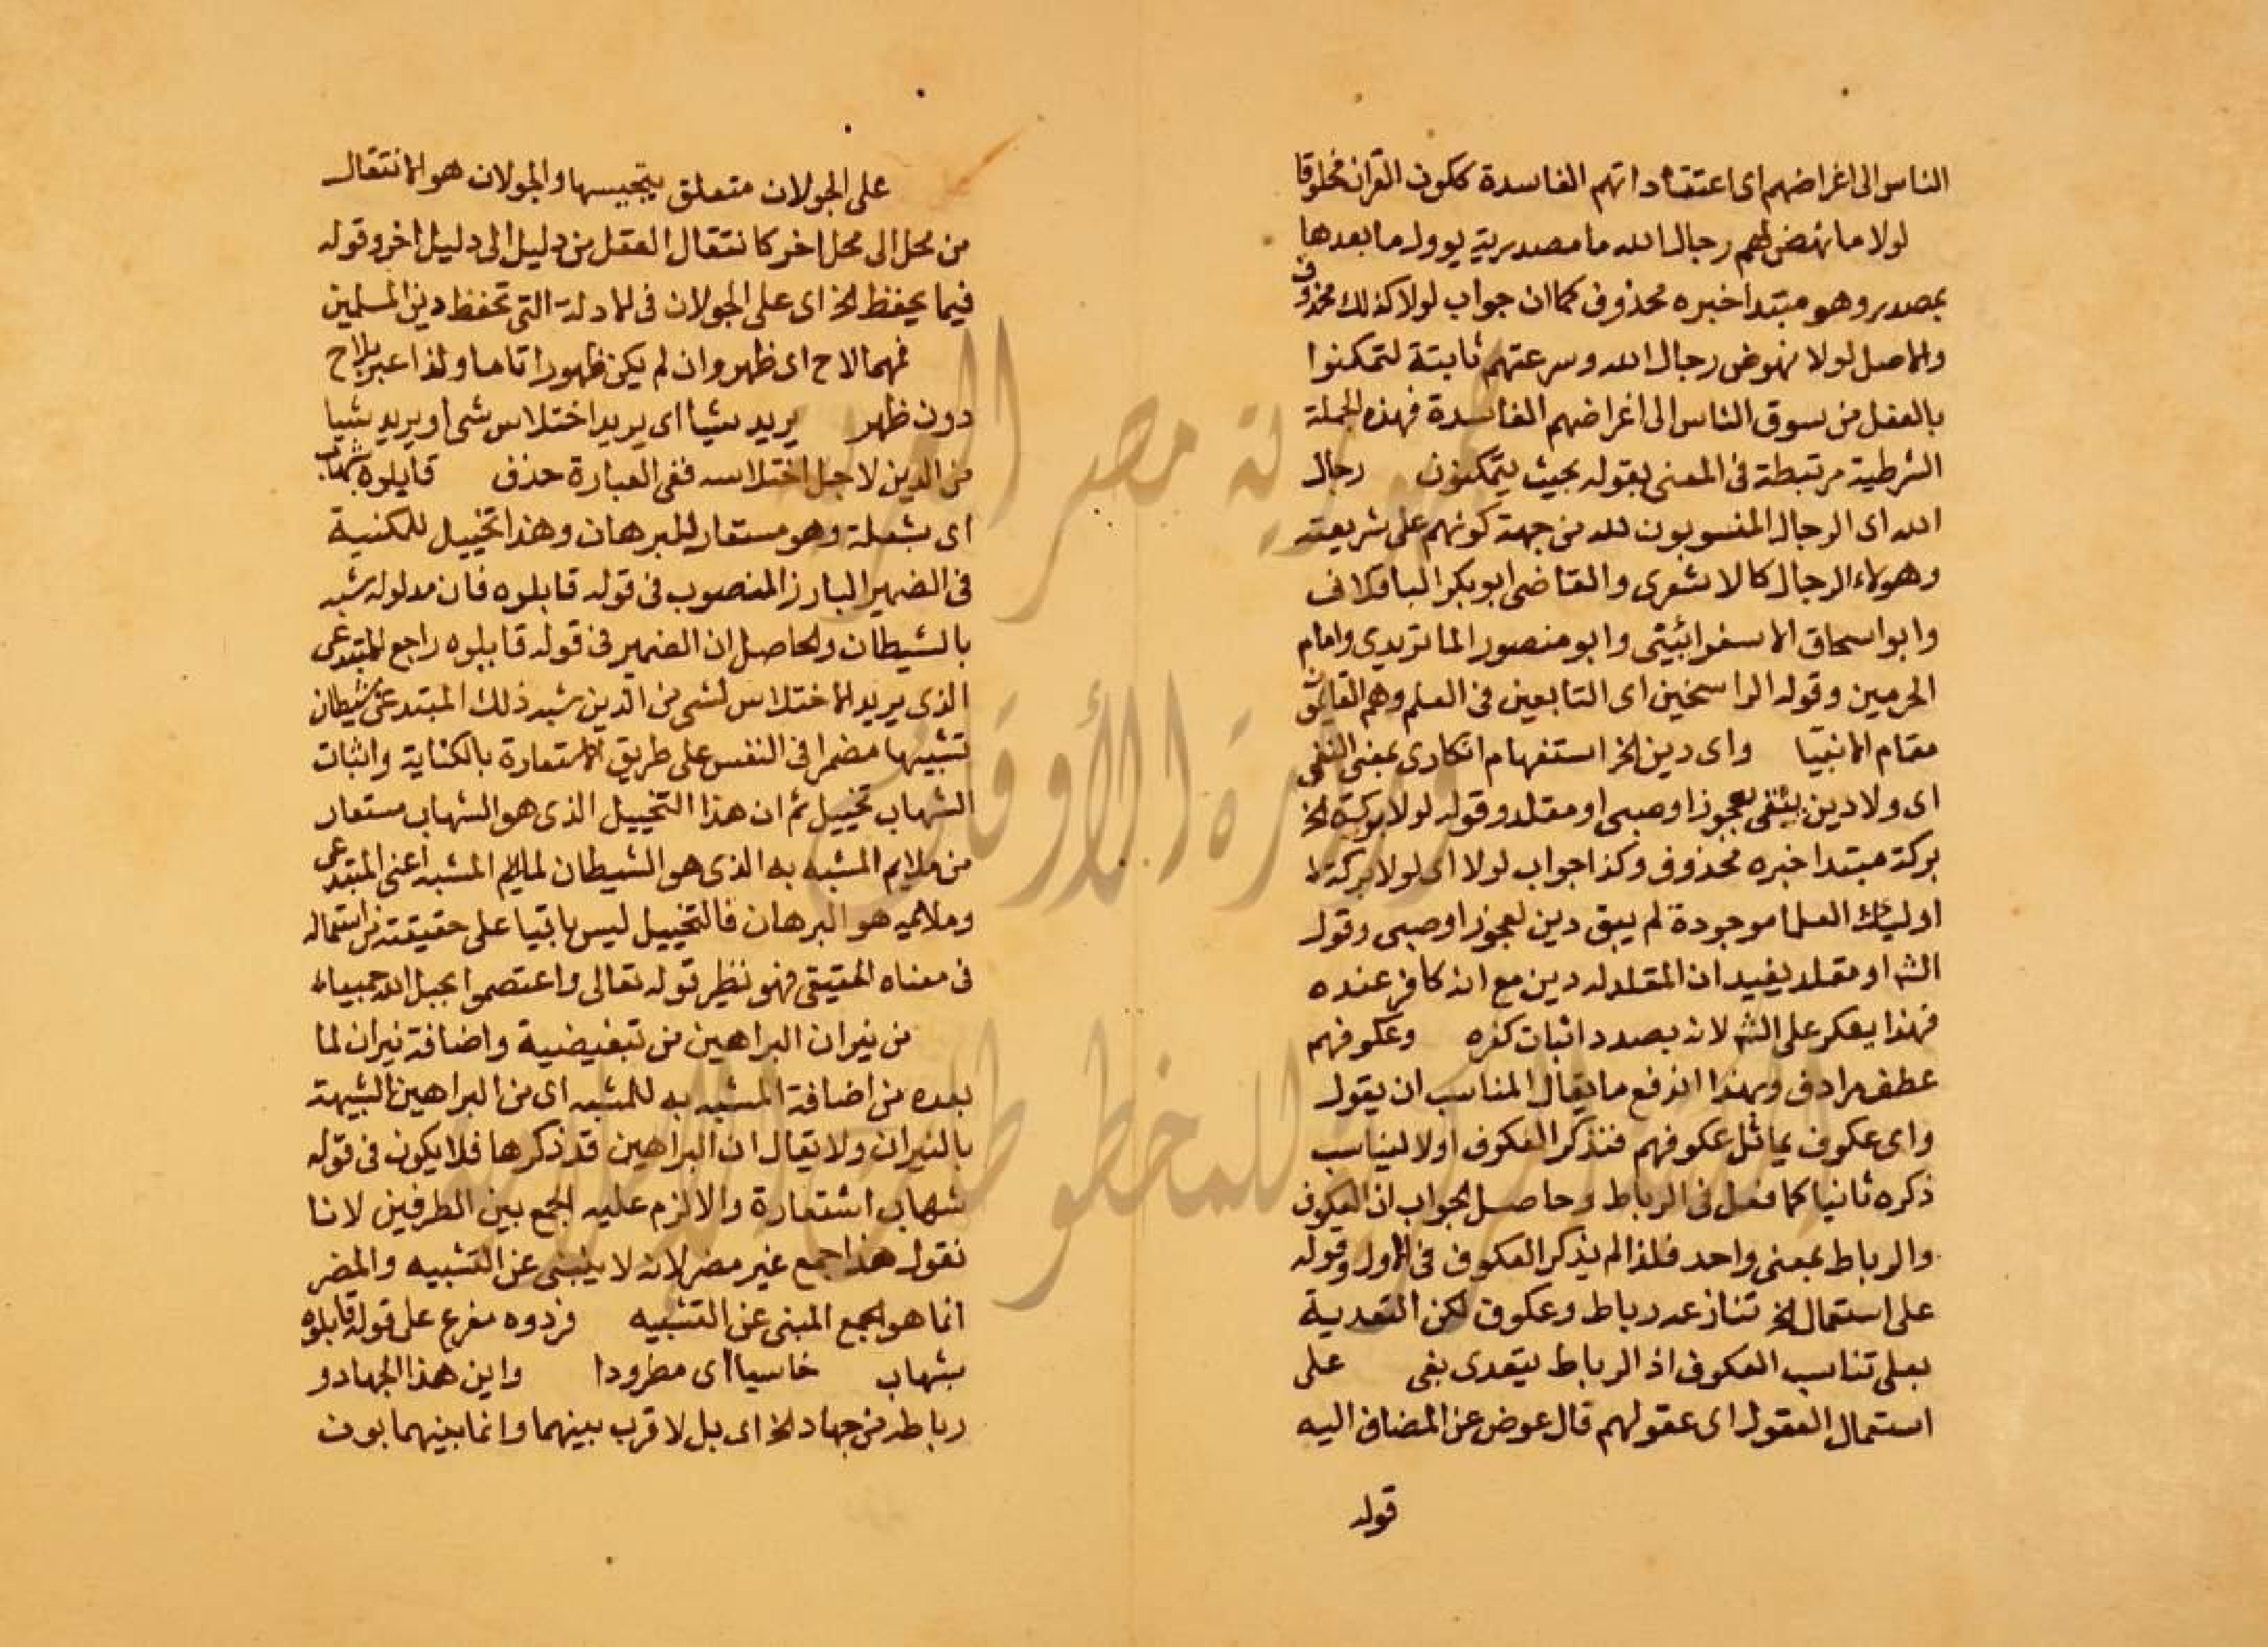 الناس الى اغراضهم اى اعتقاداتهم الفاسدة ككون القران مخلوقا
لولا ما نهض لهم رجال الله ما مصدرية يوول ما بعدها
بمصدر وهو مبتدا خبره محذوف كما ان جواب لولا كذلك محذوف
والحاصل لولا نهوض رجال الله وسرعتهم ثابتة لتمكنوا
بالفعل من سوق الناس الى اغراضهم الفاسدة فهذه الجملة
الشرطية مرتبطة فى المعنى بقوله بحيث يتمكنون رجال
الله اى الرجال المنسوبون لله من جهة كونهم على شريعته
وهولاء الرجال كالاشعرى والقاضى ابو بكر الباقلانى
وابو اسحاق الاسفرائينى وابو منصور الماتريدى وامام
الحرمين وقوله الراسخين اى الثابتين فى العلم وهم القايمون
مقام الانبيا واى دين الخ استفهام انكارى بمعنى النفى
اى ولا دين يبقى لعجوز او صبى او مقلد وقوله لولا بركة الخ
بركة مبتدا خبره محذوف وكذا جواب لولا اى لولا بركة
اوليك العلما موجودة لم يبق دين لعجوز او صبى وقول
الشه او مقلد يفيد ان المقلد له دين مع انه كافر عنده
فهذا يعكر على الشه لانه بصدد اثبات كفره وعكوفهم
عطف مرادف وبهذا اندفع ما يقال المناسب ان يقول
واى عكوف يماثل عكوفهم فتذكر العكوف اولا ليناسب
ذكره ثانيا كما فعل فى الرباط وحاصل الجواب ان العكوف
والرباط بمعنى واحد فلذا لم يذكر العكوف فى الاول وقوله
على استعمال الخ تنازعه رباط وعكوف لكن التعدية
بعلى تناسب العكوف اذ الرباط يتعدى بفى على
استعمال العقول اى عقولهم فال عوض عن المضاف اليه
قوله
على الجولان متعلق بتحبيسها والجولان هو الانتقال
من محل الى محل اخر كانتقال العقل من دليل الى دليل اخر وقوله
فيما يحفظ الخ اى على الجولان فى الادلة التى تحفظ دين المسلمين
فمهما لاح اى ظهر وان لم يكن ظهورا تاما ولذا عبر بلاح
دون ظهر يريد شيا اى يريد اختلاس شى او يريد شيا
من الدين لاجل اختلاسه ففى العبارة حذف قابلوه بشهاب
اى بشعلة وهو مستعار للبرهان وهذا تخييل للمكنية
فى الضمير البارز المنصوب فى قوله قابلوه فان مدلوله شبه
بالشيطان والحاصل ان الضمير فى قوله قابلوه راجع للمبتدعى
الذى يريد الاختلاس لشى من الدين شبه ذلك المبتدعى بشيطان
تشبيها مضمرا فى النفس على طريق الاستعارة بالكناية واثبات
الشهاب تخييل ثم ان هذا التخييل الذى هو الشهاب مستعار
من ملايم المشبه به الذى هو الشيطان لملايم المشبه اعنى المبتدعى
وملايمه هو البرهان فالتخييل ليس باقيا على حقيقته من استعماله
فى معناه الحقيقى فهو نظير قوله تعالى واعتصموا بحبل الله جميعا
من نيران البراهين من تبعيضية واضافة نيران لما
بعده من اضافة المشبه به للمشبه اى من البراهين الشبيهة
بالنيران ولا يقال ان البراهين قد ذكرها فلا يكون فى قوله
شهاب استعارة والا لزم عليه الجمع بين الطرفين لانا
نقول هذا جمع غير مضر لانه لا ينبى عن التشبيه والمضر
انما هو الجمع المنبى عن التشبيه فردوه مفرع على قوله قابلوه
بشهاب خاسيا اى مطرودا واين هذا الجهاد و
رباطه من جهاد الخ اى بل لا قرب بينهما وانما بينهما بون
جمهورية مصر العربية
وزارة الأوقاف